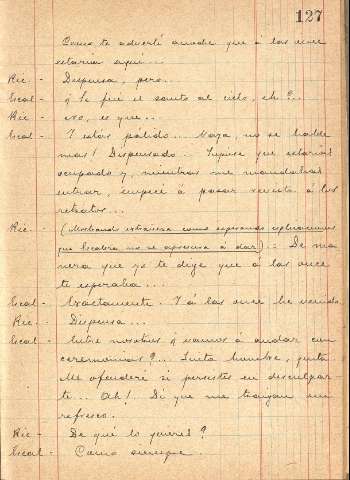 127
Como te advertí anoche que á las once
estaría aquí...
Ric. - Dispensa, pero...
Escal - ¿Se fué el santo al cielo, eh?...
Ric - No, es que...
Escal - Y estás pálido... Vaya, no se hable
más! Dispensado... Supuse que estarías
ocupado y, mientras me mandabas
entrar, empecé á pasar revista á los
retratos...
Ric. - (Mostrando extrañeza como esperando explicaciones
que Escalera no se apresura á dar)... De ma
nera que yo te dije que á las once
te esperaba...
Escal - Exactamente. Y á las once he venido
Ric. - Dispensa...
Escal - Entre nosotros ¿vamos á andar con
ceremonias?... Quita hombre, quita
Me ofenderé si persistes en disculpar-
te... Ah! Di que me traigan un
refresco.
Ric - De qué lo quieres?
Escal - Como siempre.